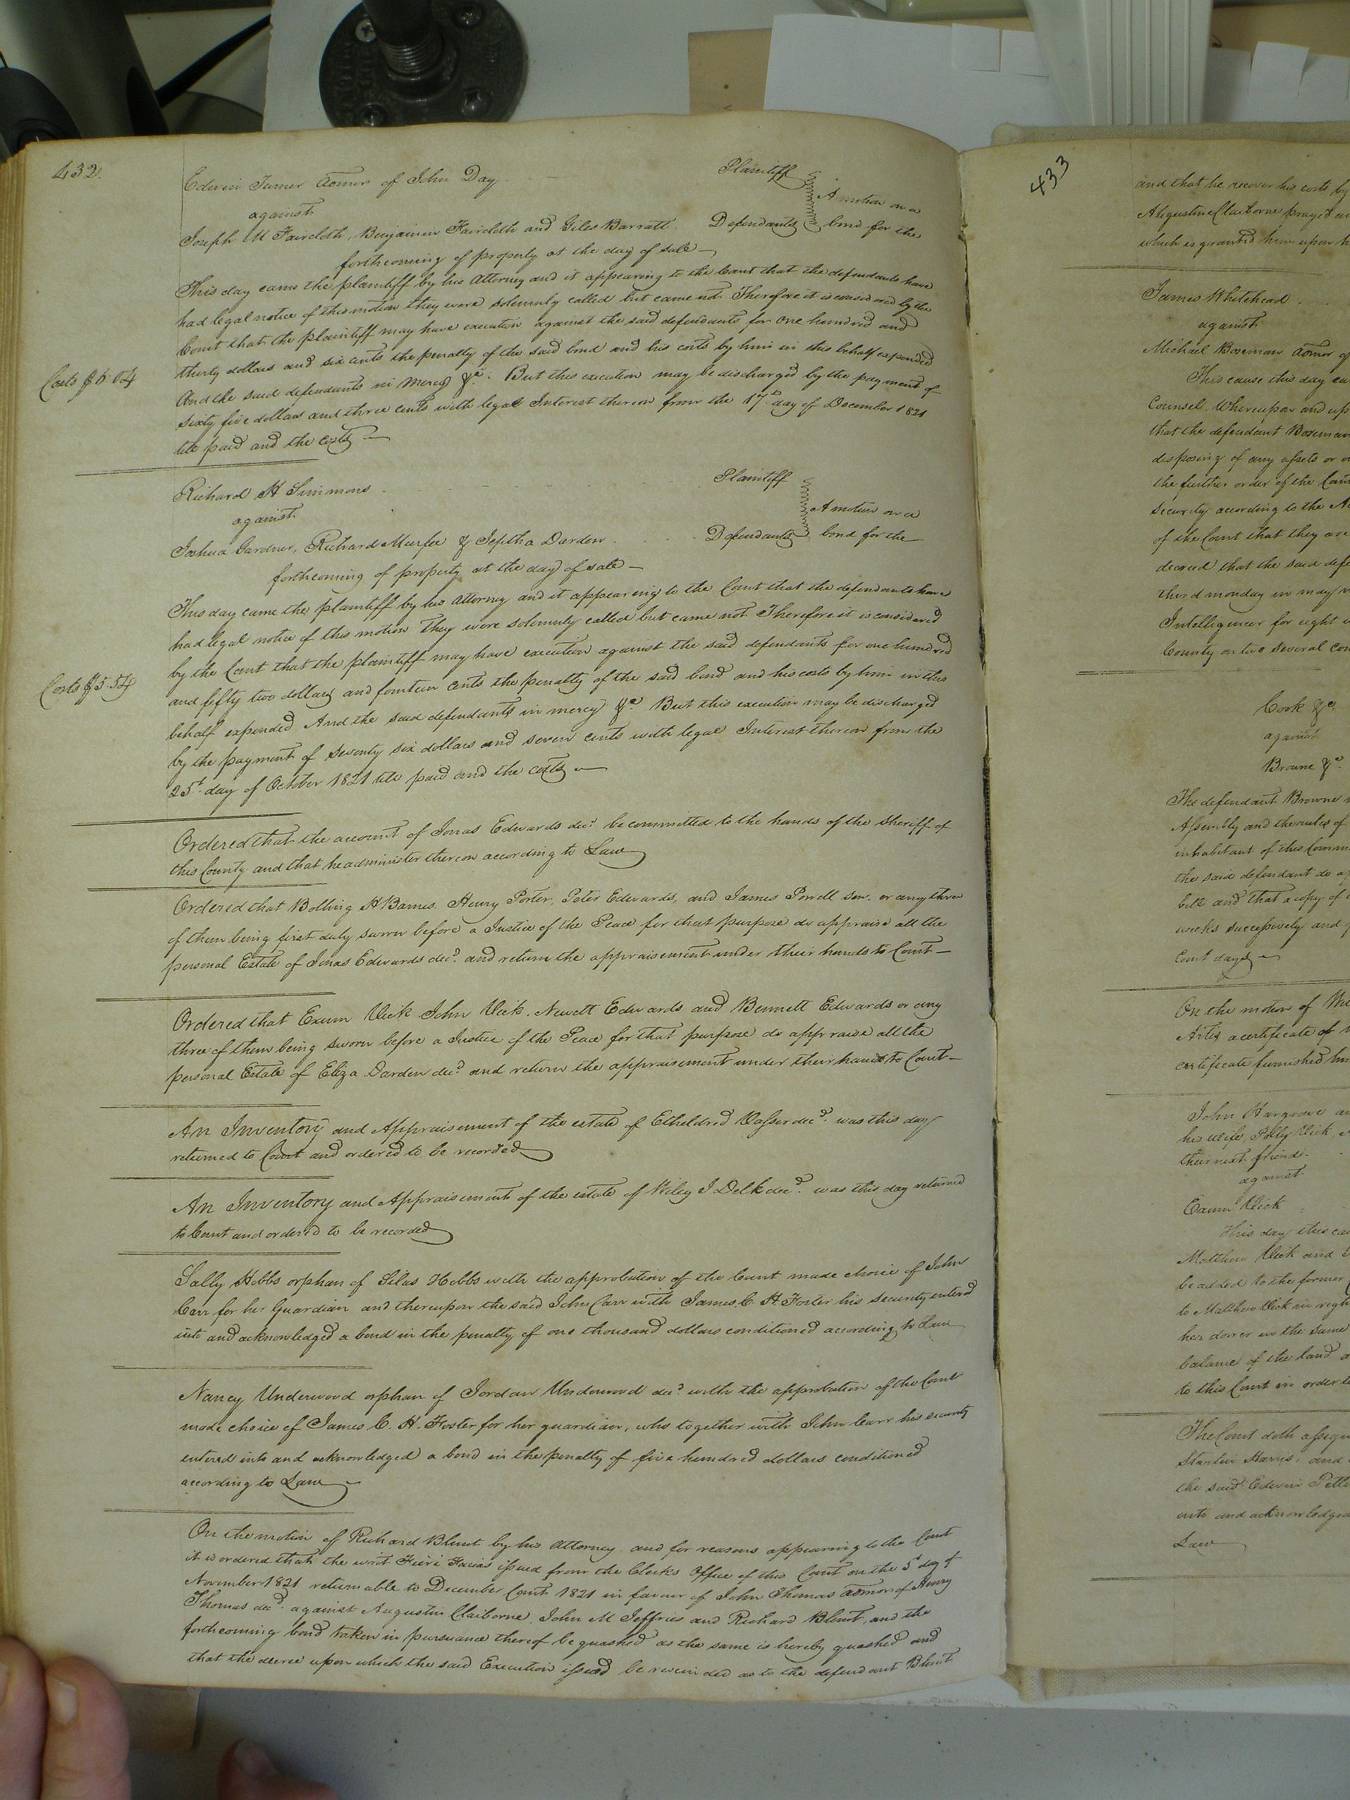 432
Edwin Turner Admor of John Day Plaintiff
against A motion on a
Joseph M Faircloth, Benjamin Faircloth and Giles Barratt Defendants bond for the
forthcoming of property at the day of sale
This day came the plaintiff by his Attorney and it appearing to the Court that the defendants have
had legal notice of this motion they were solemnly called but came not Therefore it is considered by the
Court that the plaintiff may have execution against the said defendants for one hundred and
thirty dollars and six cents the penalty of the said bond and his costs by him in this behalf expended
Costs $6.04
And the said defendants in mercy &c. But this execution may be discharged by the payment of
sixty five dollars and three cents with legal Interest thereon from the 17th day of December 1821
till paid and the costs
Richard H Simmons Plaintiff
against A motion on a
Joshua Gardner, Richard Murfee & Jeptha Darden Defendants bond for the
forthcoming of property at the day of sale
This day came the plaintiff by his Attorney and it appearing to the Court that the defendants have
had legal notice of this motion They were solemnly called but came not Therefore it is considered
by the Court that the plaintiff may have execution against the said defendants for one hundred
and fifty two dollars and fourteen cents the penalty of the said bond and his costs by him in this
Costs $5.54
behalf expended And the said defendants in mercy &c But this execution may be discharged
by the payment of seventy six dollars and seven cents with legal Interest thereon from the
25th day of October 1821 till paid and the costs
Ordered that the account of Jonas Edwards decd. be committed to the hands of the Sheriff of
this County and that he administer thereon according to Law
Ordered that Bolling H Barnes, Henry Porter, Peter Edwards, and James Powell senr. or any three
of them being first duly sworn before a Justice of the Peace for that purpose do appraise all the
personal Estate of Jonas Edwards decd. and return the appraisement under their hands to Court
Ordered that Exum Vick John Vick, Newett Edwards and Bennett Edwards or any
three of them being sworn before a Justice of the Peace for that purpose do appraise all the
personal Estate of Eliza Darden decd and return the appraisement under their hands to Court
An Inventory and Appraisement of the estate of Etheldred Vasser decd. was this day
returned to Court and ordered to be recorded
An Inventory and Appraisement of the estate of Wiley J Delk decd. was this day returned
to Court and ordered to be recorded
Sally Hobbs orphan of Silas Hobbs with the approbation of the Court made choice of John
Carr for her Guardian and thereupon the said John Carr with James C. H. Foster his security entered
into and acknowledged a bond in the penalty of one thousand dollars conditioned according to Law
Nancy Underwood orphan of Jordan Underwood decd. with the approbation of the Court
made choice of James C. H. Foster for her guardian, who together with John Carr his security
entered into and acknowledged a bond in the penalty of five hundred dollars conditioned
according to Law
On the motion of Richard Blunt by his Attorney and for reasons appearing to the Court
it is ordered that the writ Fieri Facias issued from the Clerks Office of this Court on the 5th day of
November 1821 returnable to December Court 1821 in favour of John Thomas Admor of Henry
Thomas decd. against Augustin Claiborne, John M Jeffries and Richard Blunt, and the
forthcoming bond taken in pursuance thereof be quashed as the same is hereby quashed and
that the decree upon which the said Execution issued be rescinded as to the defendant Blunt
433
and that he recover his costs by
Augustine Claiborne prayed
which is granted him upon
James Whitehead
against
Michael Boseman Admor of
This cause this day
Counsel. Whereupon and
that the defendant Boseman
disposing of any assets or
the further order of the Court
security according to the
of the Court that they are
decreed that the said
third monday in may
Intelligencer for eight
County on two several
Cook &c.
against
Browne &c.
The defendant Browne
Assembly and the rules of
inhabitant of this Comm
the said defendant do
bill and that a copy of
weeks successively and
Court day
On the motion of
a certificate of
certificate furnished
John Hargrove
his wife, Polly Vick
their next friend
against
Exum Vick
This day this
Matthew Vick and
be added to the former
to Matthew Vick in right
her dower in the same
balance of the land
to this Court in order
The Court doth assign
Harris, and
the said Edwin
into and acknowledged
Law